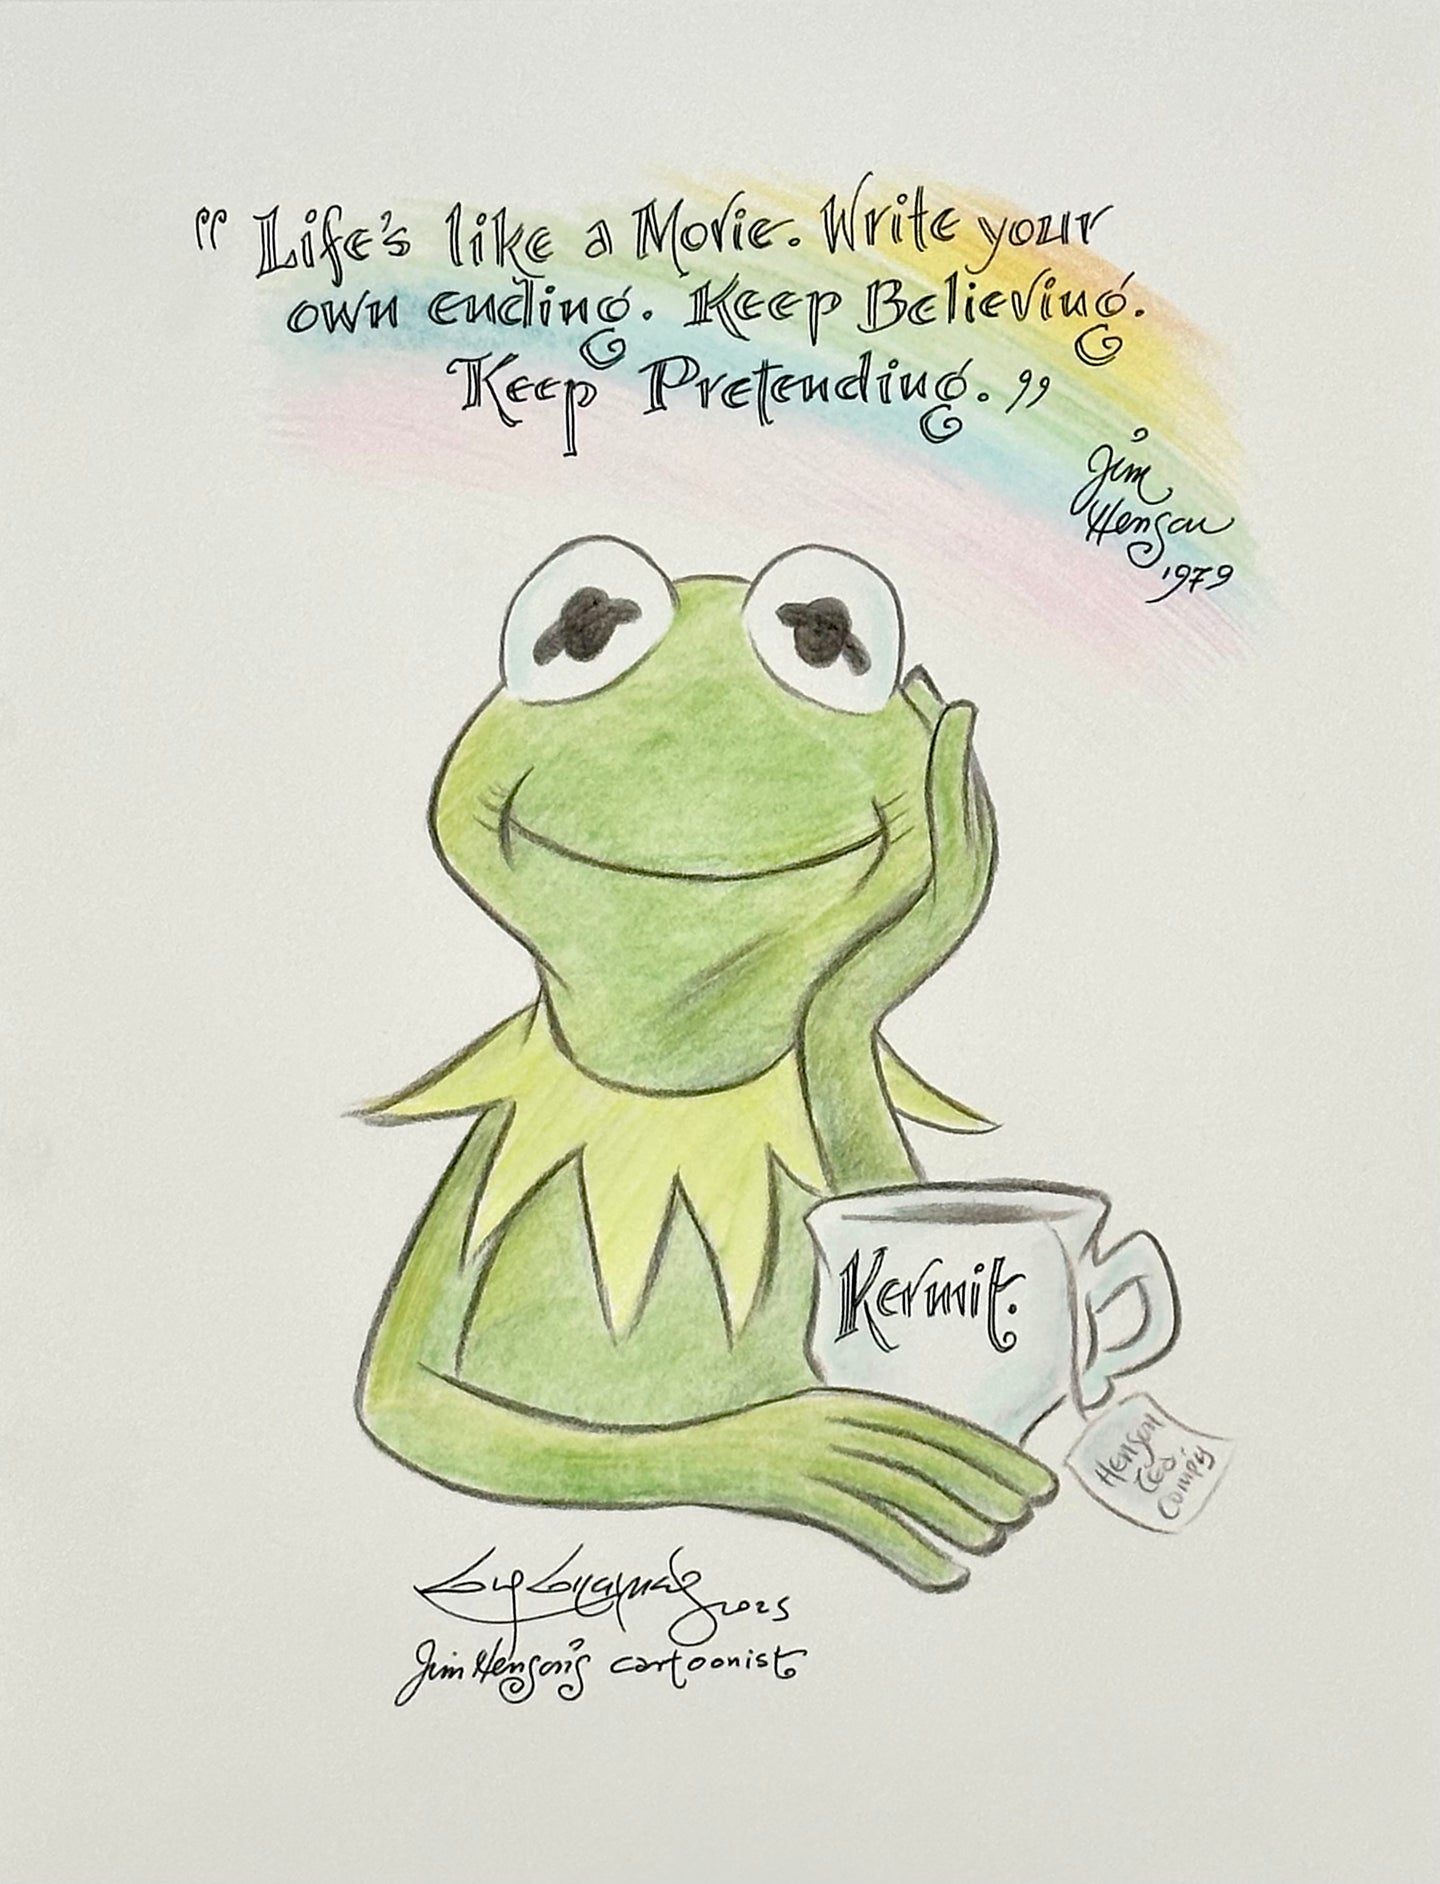 “Life's like a Movie. Write your
own ending. Keep Believing.
Keep Pretending.”
Jim
Henson
1979
Kermit.
Henson
Co.
Comp'y
Guy Gilchrist 2025
Jim Henson's cartoonist